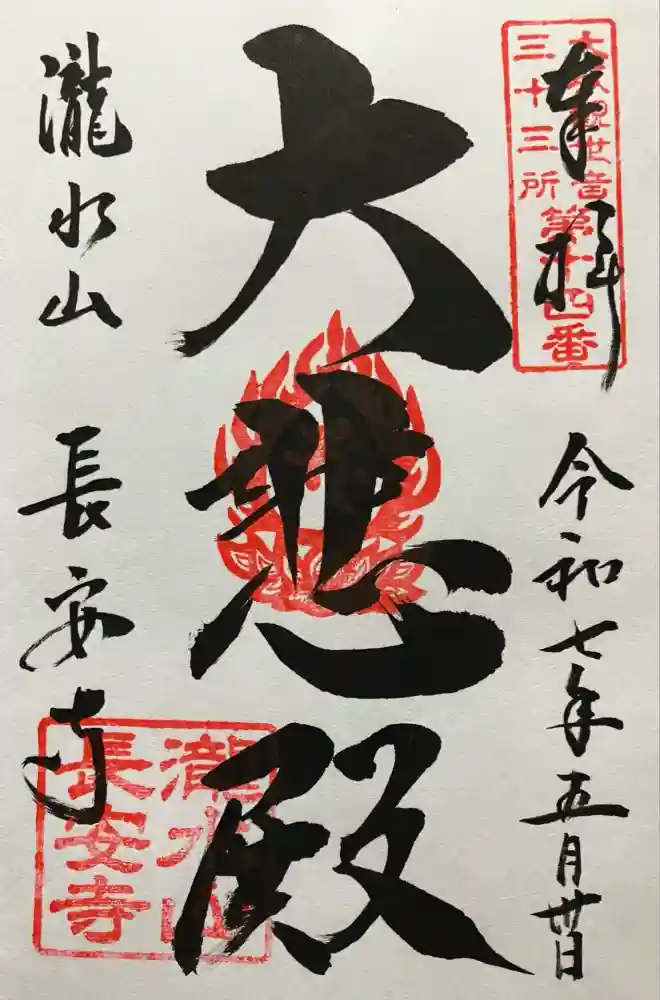 奉拝
令和七年五月卅日
観世音
三十三所
第十四番
大悲殿
瀧水山 長安寺
瀧水山
長安寺